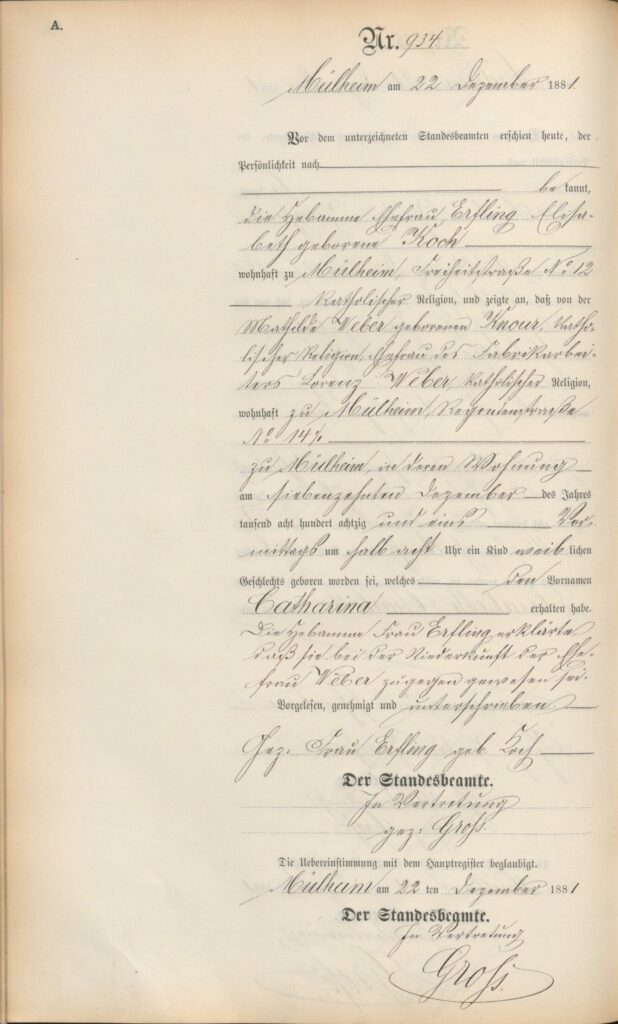 A.
Nr. 934.
Mülheim am 22 Dezember 1881
Vor dem unterzeichneten Standesbeamten erschien heute, der
Persönlichkeit nach
be kannt,
die Hebamme Ehefrau Erfling Elisa-
beth geborene Koch
wohnhaft zu Mülheim, Freiheitstraße No 12
katholischer Religion, und zeigte an, daß von der
Mathilde Weber geborenen Knour, katho-
lischer Religion, Ehefrau des Fabrikarbei-
ters Lorenz Weber, katholischer Religion,
wohnhaft zu Mülheim, Regentenstraße
No
zu Mülheim, in deren Wohnung
am siebenzehnten Dezember des Jahres
tausend acht hundert achtzig und eins Vor-
mittags um halb acht Uhr ein Kind weib lichen
Geschlechts geboren worden sei, welches den Vornamen
Catharina erhalten habe.
Die Hebamme Frau Erfling erklärte
daß sie bei der Niederkunft der Ehe-
frau Weber zugegen gewesen sei.
Vorgelesen, genehmigt und unterschrieben
Gez. Frau Erfling geb. Koch
Der Standesbeamte.
In Vertretung
gez: Groß.
Die Uebereinstimmung mit dem Hauptregister beglaubigt.
Mülheim am 22 ten Dezember 1881
Der Standesbeamte.
In Vertretung
Groß.